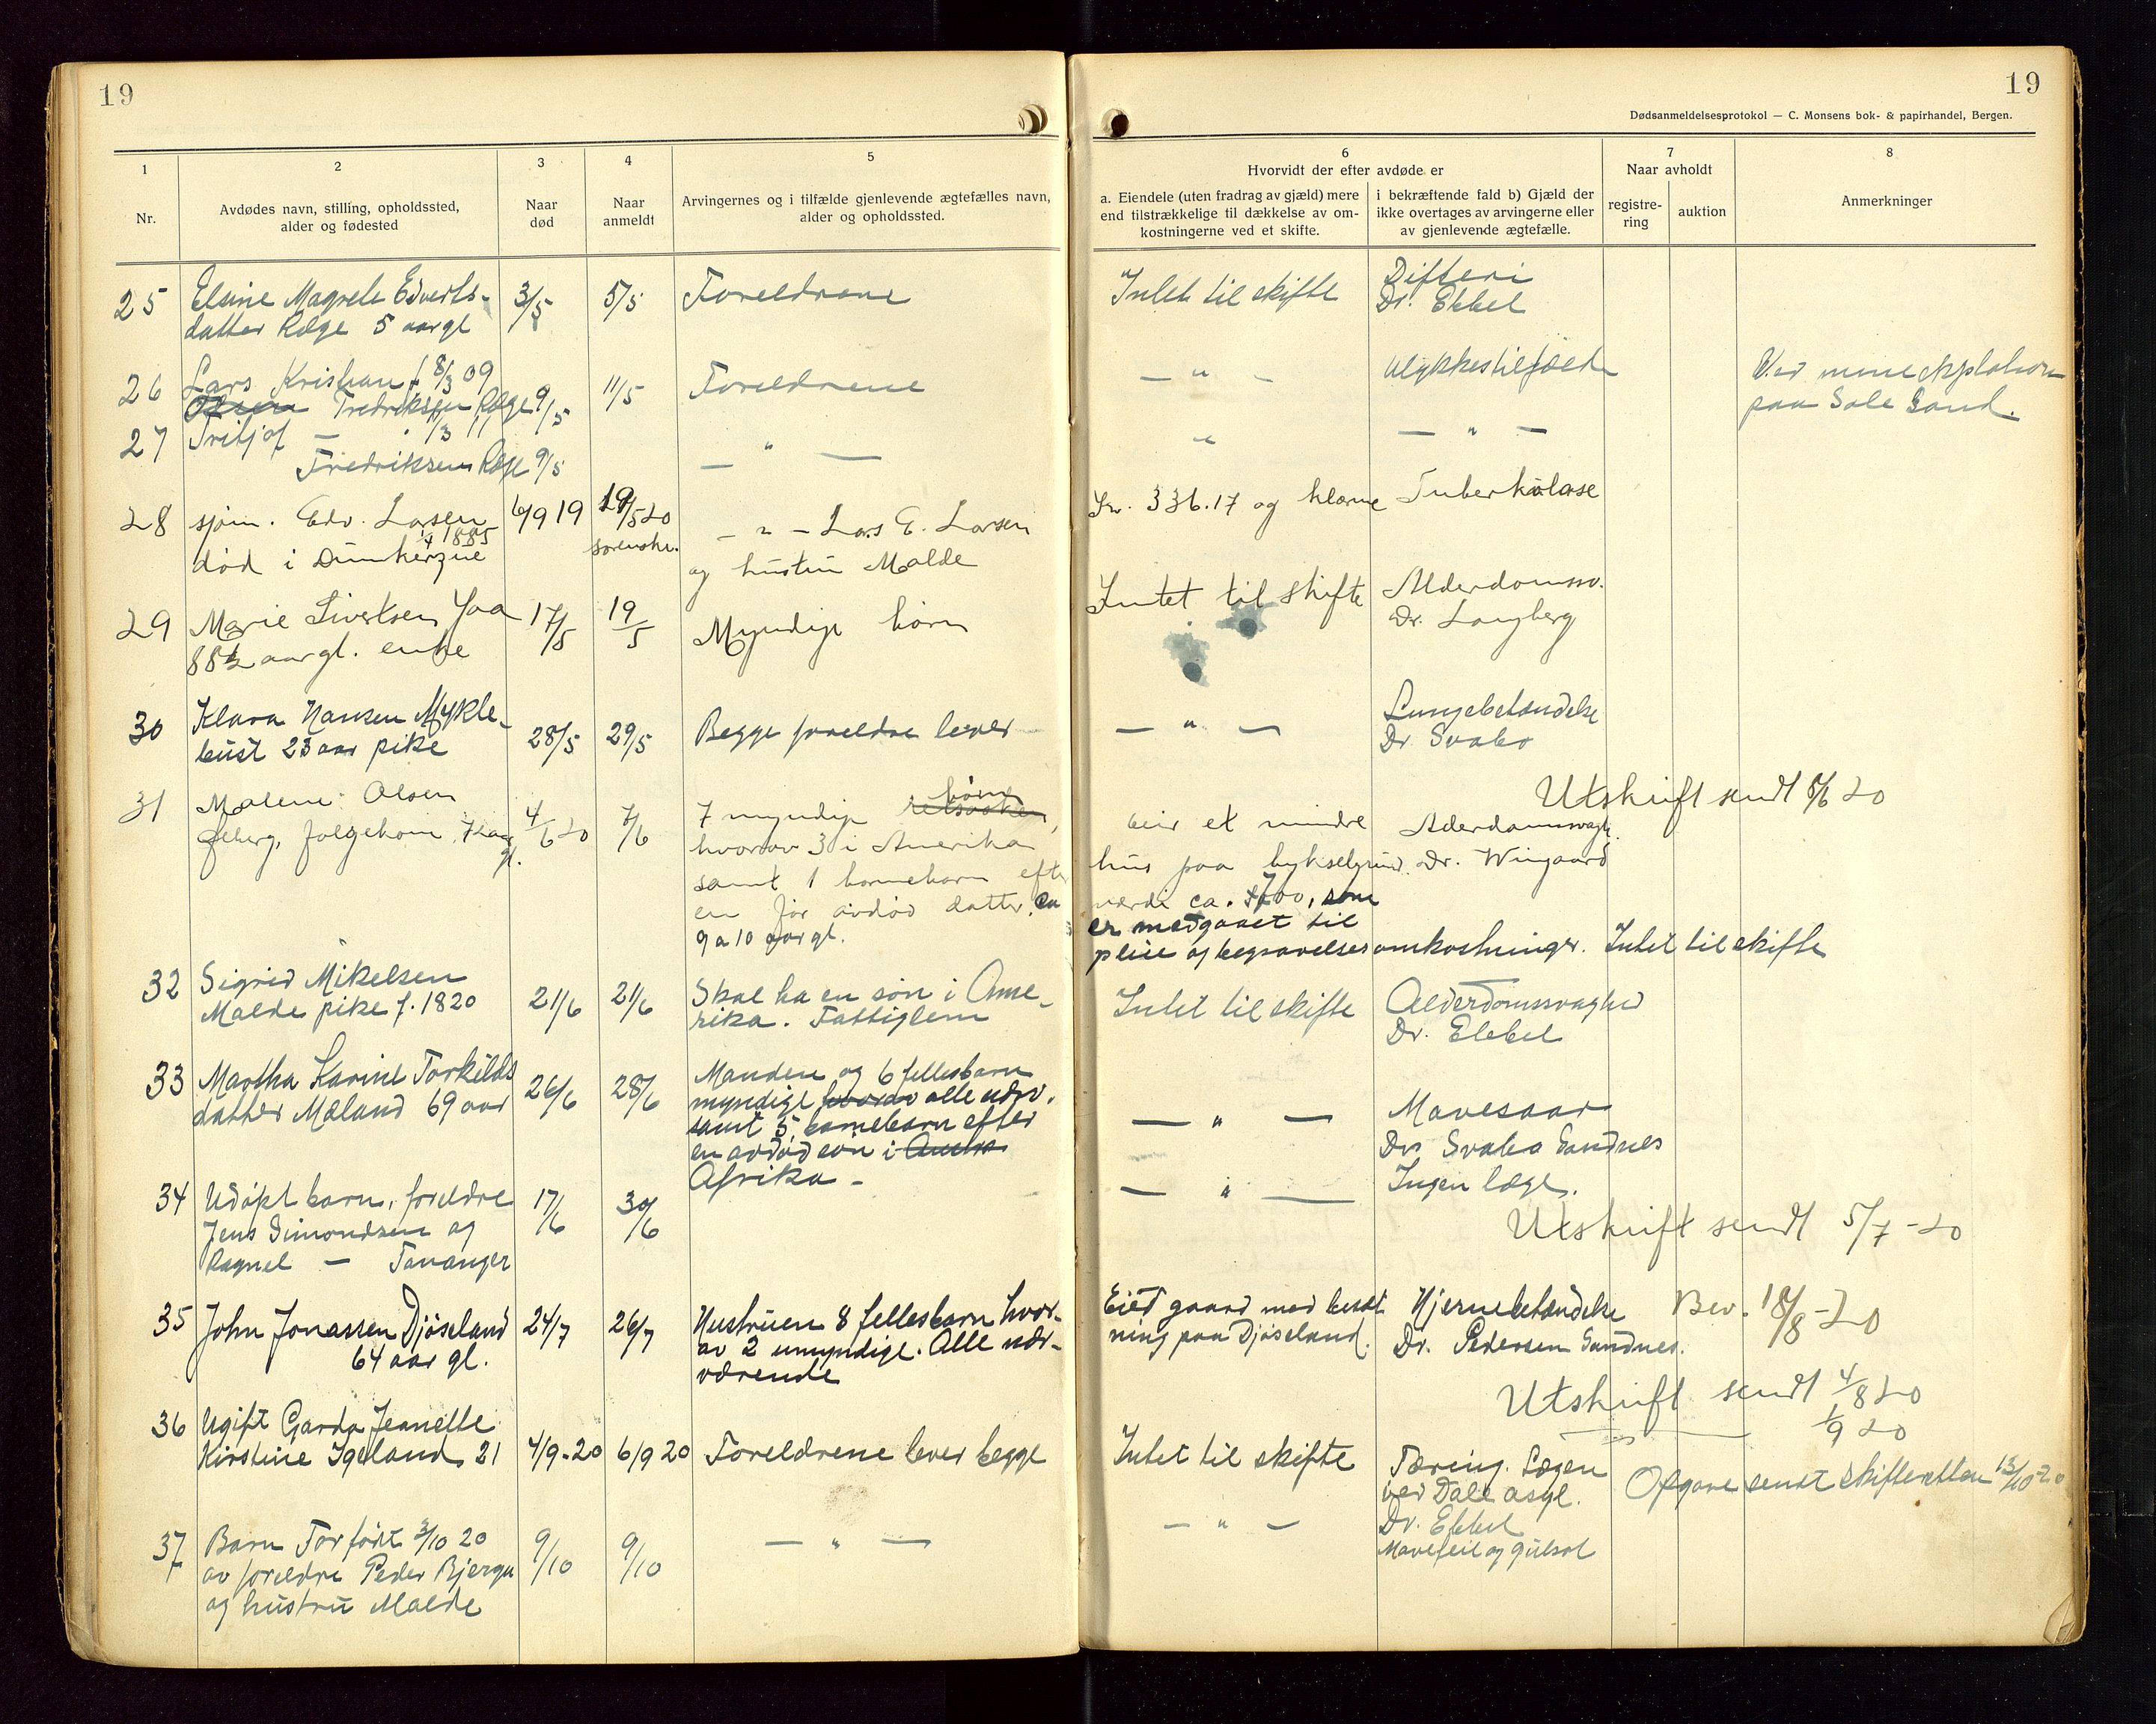 19
19
Dødsanmeldelsesprotokol — C. Monsens bok- & papirhandel, Bergen.
1
Nr.
2
Avdødes navn, stilling, opholdssted,
alder og fødested
3
Naar
død
4
Naar
anmeldt
5
Arvingernes og i tilfælde gjenlevende ægtefælles navn,
alder og opholdssted.
6
Hvorvidt der efter avdøde er
a. Eiendele (uten fradrag av gjæld) mere
end tilstrækkelige til dækkelse av om-
kostningerne ved et skifte.
i bekræftende fald b) Gjæld der
ikke overtages av arvingerne eller
av gjenlevende ægtefælle.
7
Naar avholdt
registre-
ring
auktion
8
Anmerkninger
25
Elsine Magrete Edverts-
datter Ræge 5 aar gl
3/5
5/5
Foreldrene
Intet til skifte
Difteri
Dr. Ebbel
26
Lars Kristian f 8/3 09
Fredriksen Ræge
9/5
11/5
Foreldrene
— " —
Ulykkestilfæld
Ved mineexplosion
paa Sole Sand.
27
Fritjof — 1/3 11
Fredriksen Ræge
9/5
— " —
"
— " —
28
sjøm. Edv. Larsen
1/4 1885
død i Dunkerque
6/9 19
19/5 20
sorenskr.
— " — Lars E. Larsen
og hustru Malde
Kr. 336.17 og klærne
Tuberkulose
29
Marie Sivertsen Joa
88½ aar gl. enke
17/5
19/5
Myndige børn
Intet til skifte
Alderdomssv.
Dr. Langberg
30
Klara Hansen Mykle-
bust 23 aar pike
28/5
29/5
Begge foreldre lever
— " —
Lungebetændelse
Dr Svabo
Utskrift sendt 8/6 20
31
Malene Olsen
Øberg, folgekone, 7 aar
gl.
4/6 20
7/6
børn
7 myndige
hvorav 3 i Amerika
samt 1 barnebarn efter
en før avdød datter, ca
9 a 10 aar gl.
Eier et mindre
hus paa bykselgrund.
værdi ca. 700, som
er medgaaet til
pleie og begravelsesomkostninger. Intet til skifte
Alderdomssvagh.
Dr. Wingaard
32
Sigrid Mikelsen
Malde pike f. 1820
21/6
21/6
Skal ha en søn i Ame-
rika. Fattiglem
Intet til skifte
Alderdomssvaghed
Dr. Ebbel
33
Martha Karine Torkilds
datter Mæland 69 aar
26/6
28/6
Manden og 6 fellesbarn
myndige hvorav alle nærv.
samt 5 barnebarn efter
en avdød søn i
Afrika —
— " —
Mavesaar
Dr Svabo Sandnes
34
Udøpt barn, foreldre
Jens Simondsen og
Ragnel — Tananger
17/6
30/6
— " —
Ingen læge.
Utskrift sendt 5/7 - 20
35
John Jonassen Djøseland
64 aar gl.
24/7
26/7
Hustruen 8 fellesbarn hvor-
av 2 umyndige. Alle nær-
værende
Eied gaard med besæt
ning paa Djøseland.
Hjernebetændelse
Dr. Pedersen Sandnes.
Bev. 18/8 - 20
Utskrift sendt 4/8 20
— " — 1/9 20
36
Ugift Garda Jeanette
Kirstine Igeland 21
4/9-20
6/9 20
Foreldrene lever begge
Intet til skifte
Tæring. Lægen
ved Dale asyl.
Opgave sendt skifteretten 13/10-20
37
Barn Tor født 3/10 20
av foreldre Peder Bjerga
og hustru Malde
9/10
9/10
— " —
— " —
Dr. Ebbel
Mavefeil og gulsot